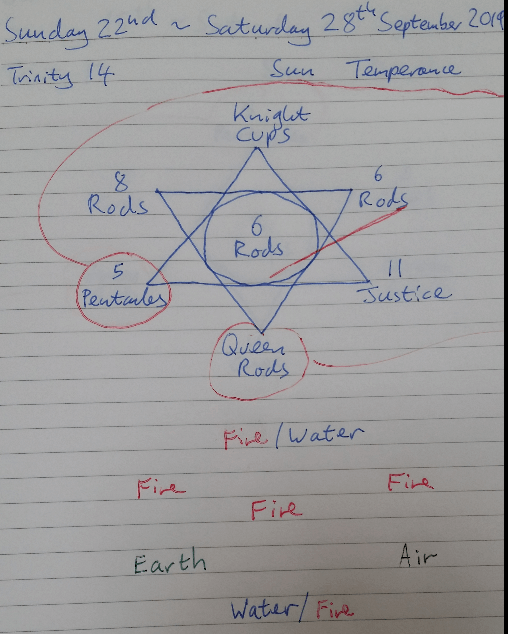 Sunday 22nd ~ Saturday 28th September 2019
Trinity 14 Sun Temperance
Knight
Cups
8
Rods
6
Rods
6
Rods
5
Pentacles
11
Justice
Queen
Rods
Fire/Water
Fire
Fire
Fire
Earth
Air
Water/Fire